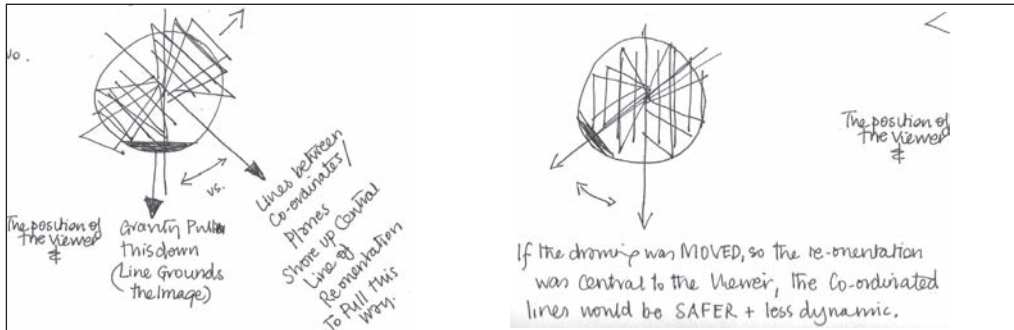 No.
The position of
the Viewer
Gravity Pulls
this down
(Line Grounds
the Image)
vs.
Lines between
Co-ordinates/
Planes
Shore up Central
Line of
Reorientation
To Pull this
way.
The position of
the Viewer
If the drawing was MOVED, so the re-orientation
was central to the viewer, the Co-ordinated
lines would be SAFER + less dynamic.